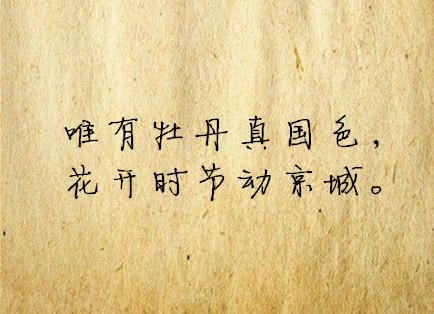 唯有牡丹真国色，
花开时节动京城。